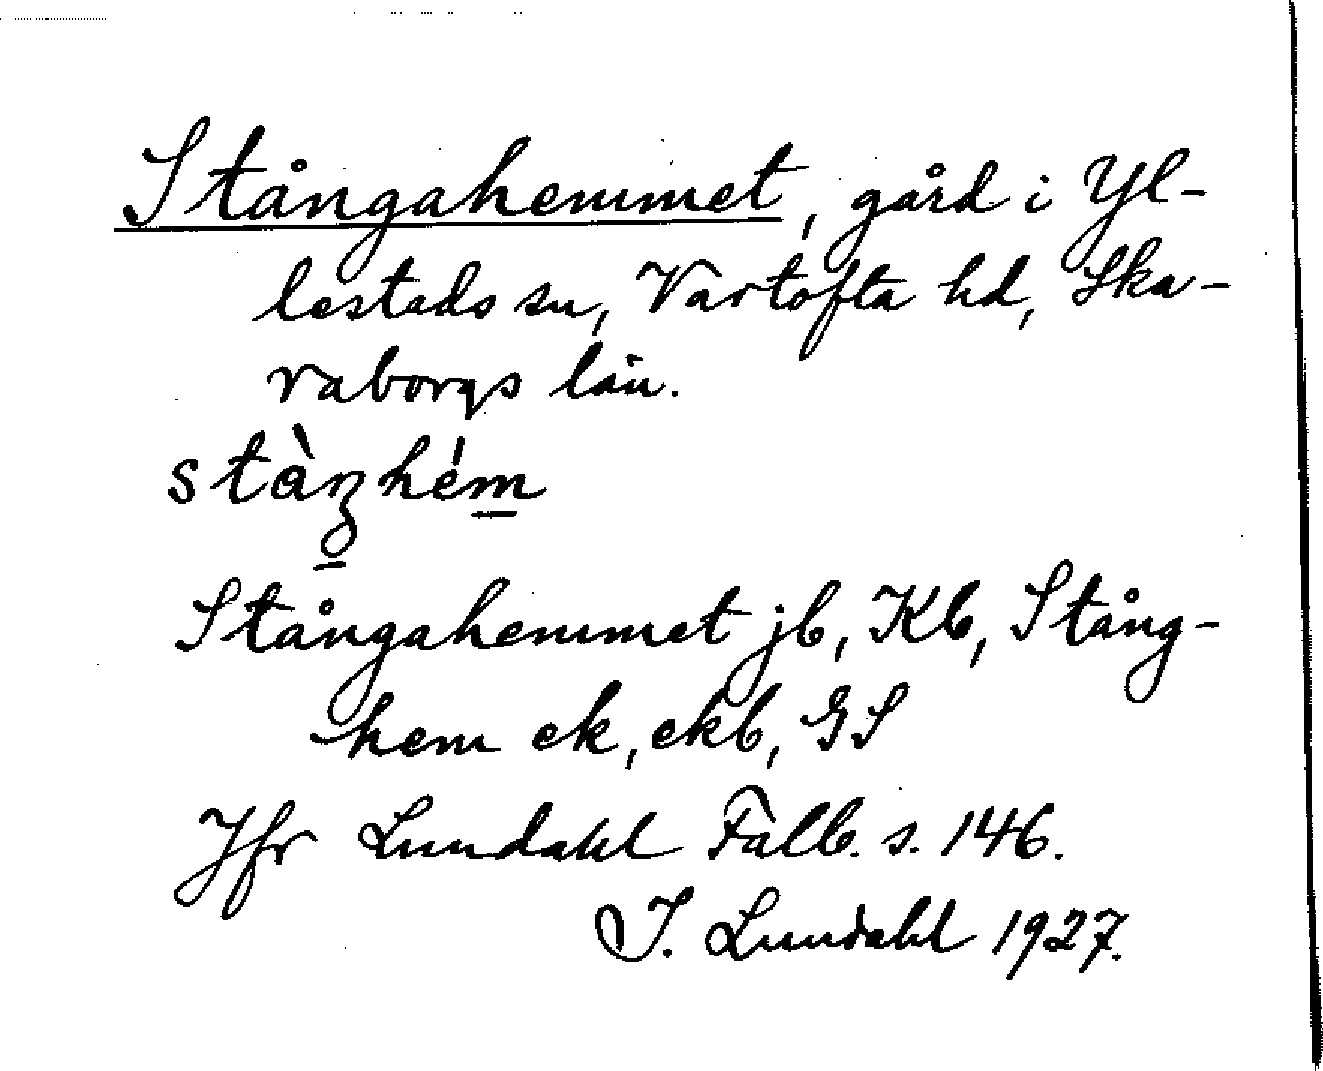 Stångahemmet, gård i Yl-
lestads sn, Vartofta hd, Ska-
raborgs län.
stàŋhém
Stångahemmet jb, Kb, Stång-
hem ek, ekb, GS
Jfr Lundahl Falb. s. 146.
I. Lundahl 1927.